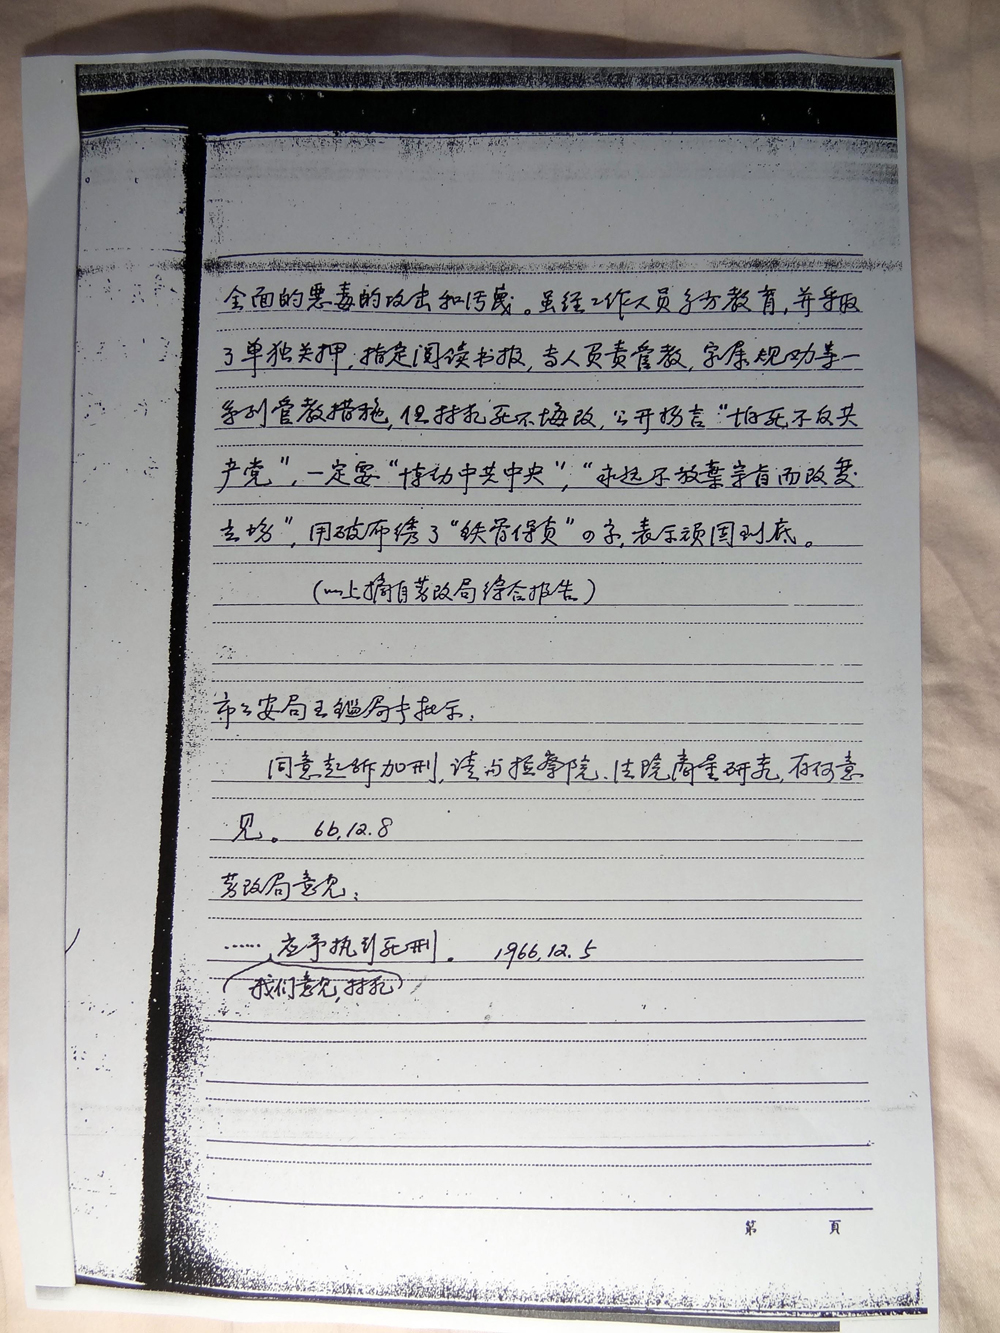 全面的恶毒的攻击和污蔑。虽经工作人员多方教育，并采取
了单独关押，指定阅读书报，专人负责管教，家属规劝等一
系列管教措施，但林犯死不悔改，公开扬言“怕死不反共
产党”，一定要“ 动中共中央”；“永远不放棄宗旨而改变
立场”，用破布绣了“铁骨保真”四字，表示顽固到底。
（以上摘自劳改局综合报告）
市公安局王鑑局长批示：
同意起诉加刑，请与检察院、法院商量研究，有何意
见。 66.12.8
劳改局意见：
……应予执行死刑。 1966.12.5
我们意见，林犯
第 頁